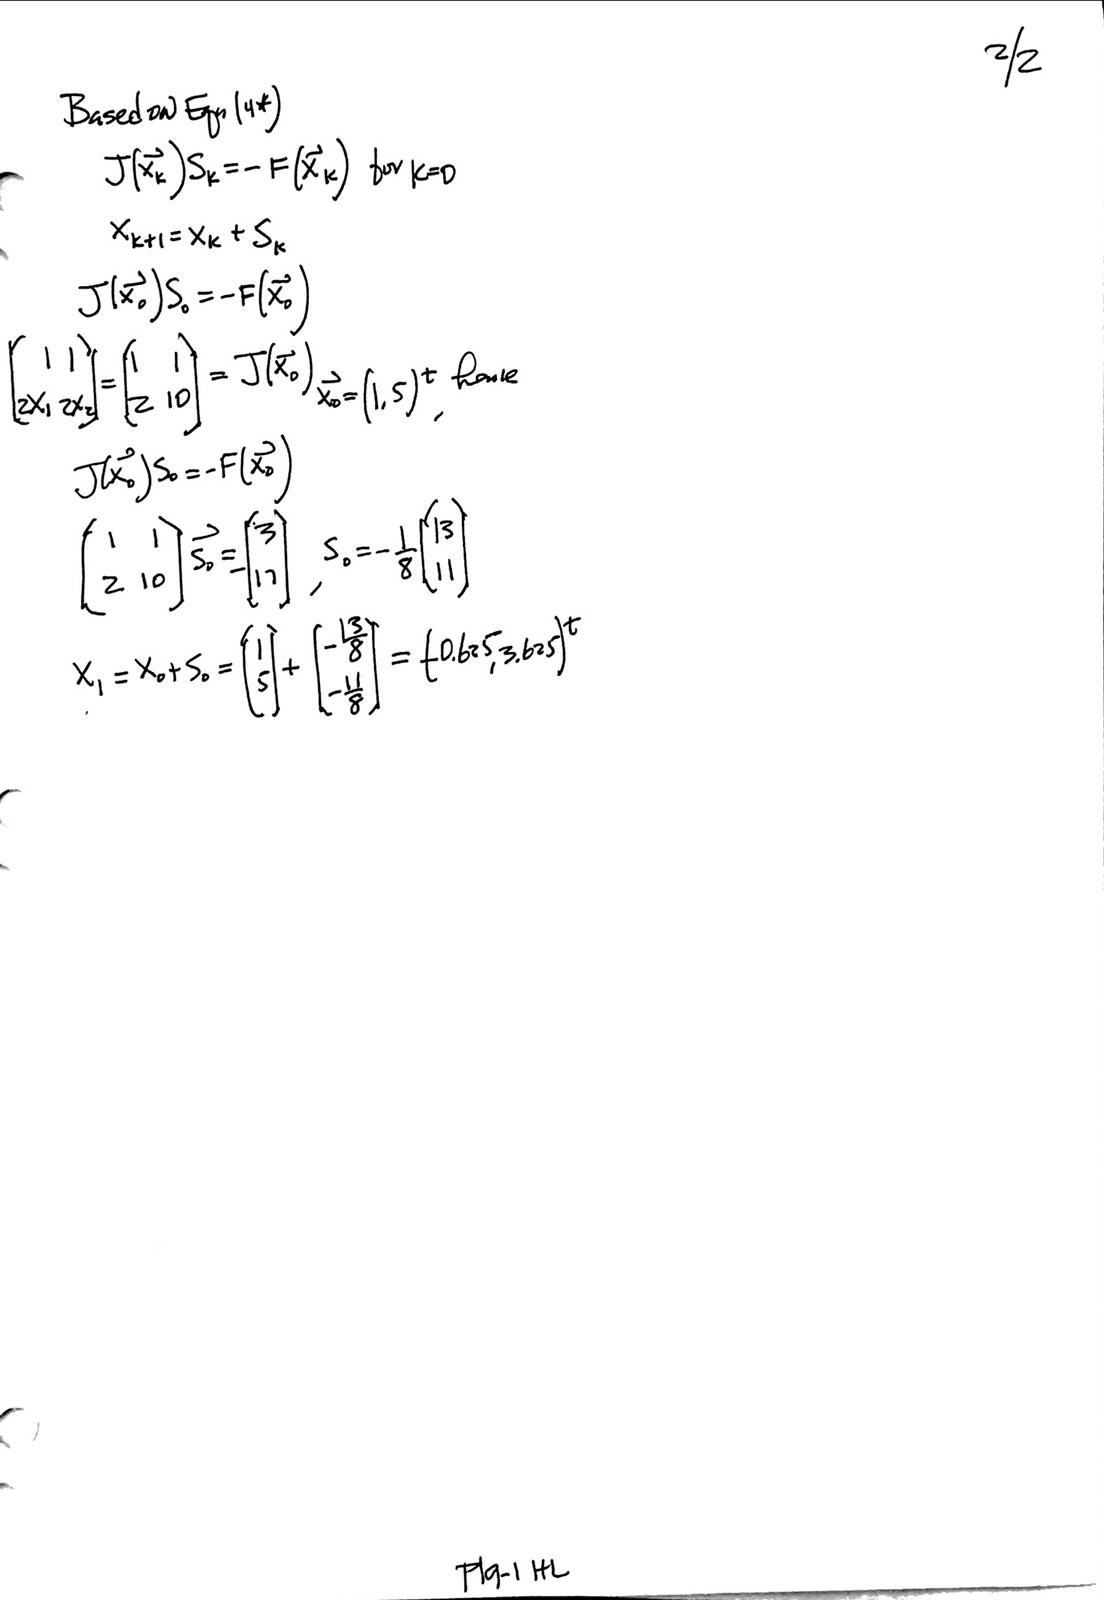 2/2
Based on Eqn (4*)
J(x⃗ₖ)Sₖ = -F(x⃗ₖ) for k=0
xₖ₊₁ = xₖ + Sₖ
J(x⃗₀)S₀ = -F(x⃗₀)
[1 1; 2x₁ 2x₂] = [1 1; 2 10] = J(x⃗₀) x⃗₀=(1,5)ᵗ, hence
J(x⃗₀)S₀ = -F(x⃗₀)
[1 1; 2 10] S⃗₀ = -[3; 17], S₀ = -1/8 [13; 11]
x₁ = x₀ + S₀ = [1; 5] + [-13/8; -11/8] = (-0.625, 3.625)ᵗ
P19-1 HL